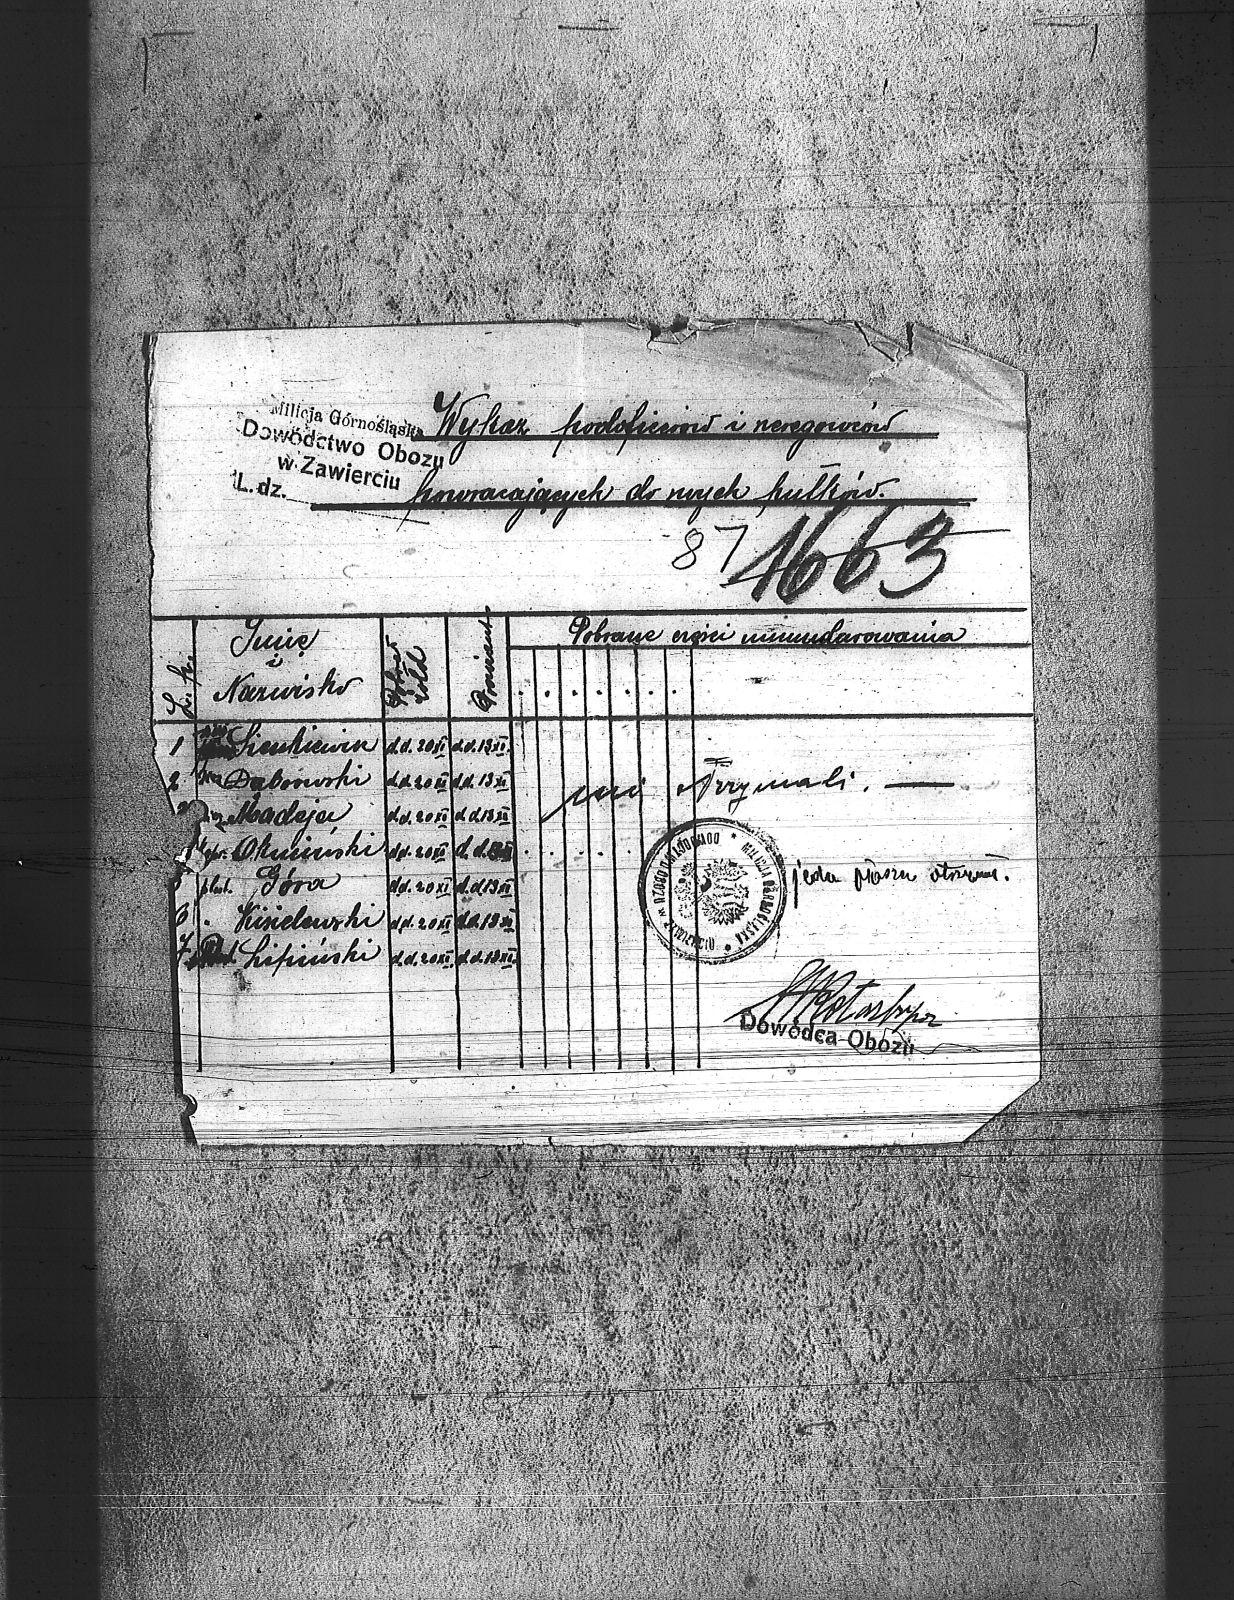 Milicja Górnośląska
Dowództwo Obozu
w Zawierciu
L. dz.
Wykaz podoficerów i szeregowców
powracających do swych pułków.
87 1663
L. Imię i Nazwisko Pobrał żołd Prowiant Pobrane części umundurowania
1 Sienkiewicz d.d. 20 XI d.d. 13 XI
2 Dąbrowski d.d. 20 XI d.d. 13 XI
Madeja d.d. 20 XI d.d. 13 XI
Okuniński d.d. 20 XI d.d.
plut. Góra d.d. 20 XI d.d. 13 XI
6 " Kisielewski d.d. 20 XI d.d. 13 XI
7 Lipiński d.d. 20 XI d.d. 13 XI
nie otrzymali. —
MILICJA GÓRNOŚLĄSKA * DOWÓDZTWO OBOZU W ZAWIERCIU *
Dowódca Obozu